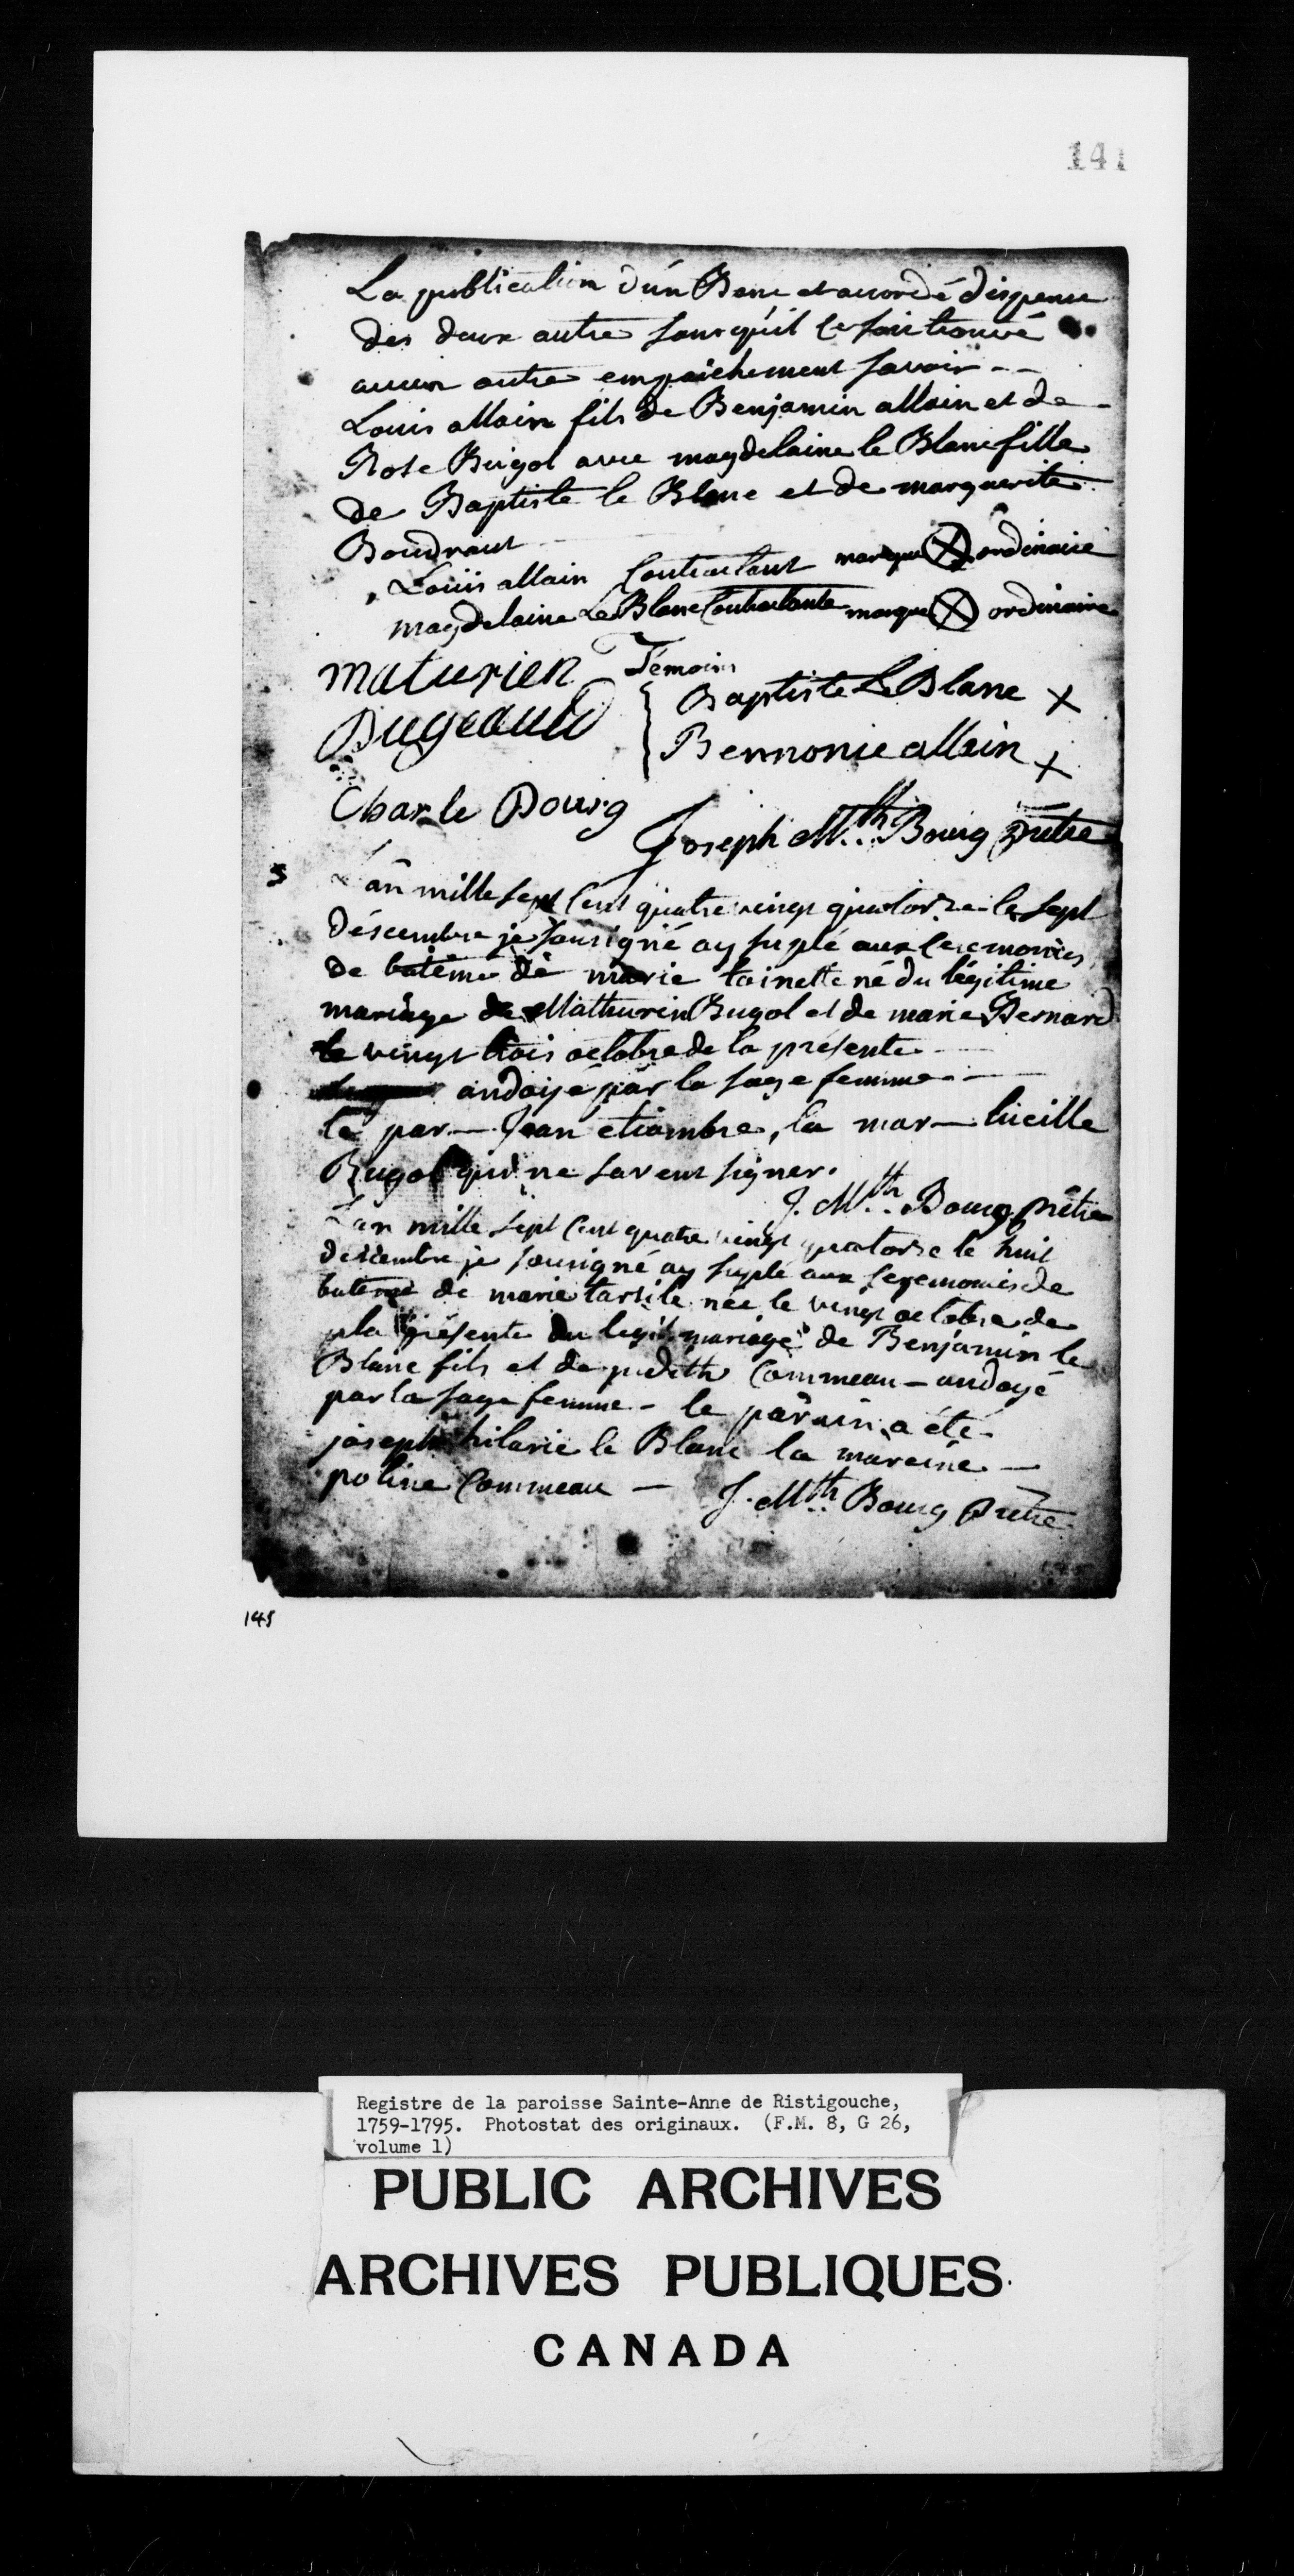 141
La publication d'ún Banc et accordé dispense
des deux autre sans qúil ce soit trouvé
aucun autre empaichement savoir - -
Louis allain fils de Benjamin allain et de -
Rose Bugol avec magdelaine le Blanc fille
de Baptiste le Blanc et de marguerite
Boudraut
Louis allain Contractant marque X ordinaire
magdelaine Le Blanc Contractante marque X ordinaire
maturien Témoins
Bugeauld Baptiste Le Blanc X
Bennonie allain X
Charle Bourg
Joseph Mth Bourg prêtre
L'an mille sept Cent quatre vingt quatorze le sept
déscembre je sousigné ay suplé aux Ceremonies
de batême de marie toinette né du légitime
mariage de Mathurin Bugol et de marie Bernard
le vingt trois octobre de la présente
andoyé par la sage femme
le par — Jean etiambre, la mar — lucille
Bugol qui ne savent signer.
J. Mth Bourg prêtre
L'an mille sept Cent quatre vingt quatorze le huit
descembre je sousigné ay suplé aux seremonies de
bateme de marie tarsile née le vingt octobre de
la présente du legit mariage de Benjamin le
Blanc fils et de judith Commeau — andoyé
par la sage femme - le parain a été
joseph hilarie le Blanc la mareine —
poline Commeau — J. Mth Bourg Prêtre
145
Registre de la paroisse Sainte-Anne de Ristigouche,
1759-1795. Photostat des originaux. (F.M. 8, G 26,
volume 1)
PUBLIC ARCHIVES
ARCHIVES PUBLIQUES
CANADA